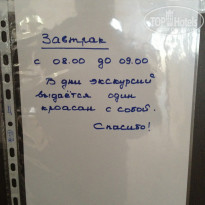 Завтрак
с 08.00 до 09.00
В дни экскурсий
выдаётся один
кроасан с собой.
Спасибо!